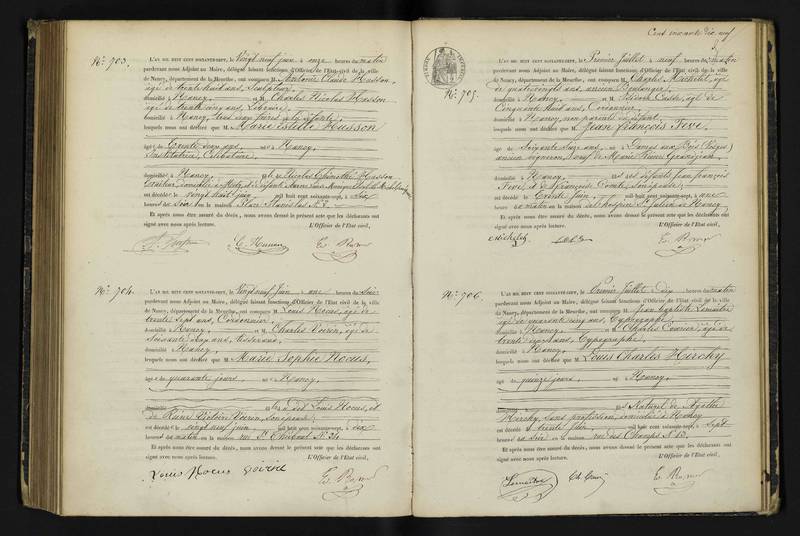 N° 703.
L'AN MIL HUIT CENT SOIXANTE-SEPT, le Vingt neuf juin à onze heures du matin
pardevant nous Adjoint au Maire, délégué faisant fonctions d'Officier de l'Etat civil de la ville
de Nancy, département de la Meurthe, ont comparu M. Antoine Claude Husson,
âgé de trente huit ans, Sculpteur,
domicilié à Nancy, et M. Charles Nicolas Husson
âgé de trente cinq ans,
domicilié à Nancy, tous deux frères de la défunte,
lesquels nous ont déclaré que M. Marie Estelle Husson
âgée de Trente deux ans, né à Nancy,
Institutrice, Célibataire,
domiciliée à Nancy, Husson
est décédée le vingt huit juin mil huit cent soixante-sept, à
heures du Soir en la maison Place Stanislas N° 3.
Et après nous être assuré du décès, nous avons dressé le présent acte que les déclarants ont
signé avec nous après lecture. L'Officier de l'Etat civil,
N° 704.
L'AN MIL HUIT CENT SOIXANTE-SEPT, le Vingt neuf juin une heure du Soir
pardevant nous Adjoint au Maire, délégué faisant fonctions d'Officier de l'Etat civil de la ville
de Nancy, département de la Meurthe, ont comparu M. Louis Nocus, âgé de
trente sept ans, Cordonnier,
domicilié à Nancy, et M. Charles Voirin, âgé de
Soixante cinq ans, Tisserand,
domicilié à Nancy,
lesquels nous ont déclaré que M. Marie Sophie Nocus,
âgée de quarante jours, né à Nancy,
domicilié fille de Louis Nocus, et
de Victoire Voirin, son épouse
est décédée le vingt neuf juin mil huit cent soixante-sept, à dix
heures du matin en la maison rue St Thiébaut N° 30.
Et après nous être assuré du décès, nous avons dressé le présent acte que les déclarants ont
signé avec nous après lecture. L'Officier de l'Etat civil,
Louis Nocus voirin
Cent soixante dix neuf
N° 705.
L'AN MIL HUIT CENT SOIXANTE-SEPT, le Premier Juillet à neuf heures du matin
pardevant nous Adjoint au Maire, délégué faisant fonctions d'Officier de l'Etat civil de la ville
de Nancy, département de la Meurthe, ont comparu M. Charles Michelet, âgé
de quatre vingts ans, ancien Boulanger,
domicilié à Nancy, et M. âgé de
Cinquante huit ans, Cordonnier,
domicilié à Nancy non parents du défunt,
lesquels nous ont déclaré que M. Jean François Feve,
âgé de Soixante Seize ans, né à (Vosges)
ancien vigneron, veuf de Marie
domicilié à Nancy, fils des défunts Jean François
Feve, et de Françoise Comte, son épouse,
est décédé le Trente juin, mil huit cent soixante-sept, à une
heure du matin en la maison de l'hospice St Julien de Nancy
Et après nous être assuré du décès, nous avons dressé le présent acte que les déclarants ont
signé avec nous après lecture. L'Officier de l'Etat civil,
Michelet
N° 706.
L'AN MIL HUIT CENT SOIXANTE-SEPT, le Premier Juillet dix heures du matin
pardevant nous Adjoint au Maire, délégué faisant fonctions d'Officier de l'Etat civil de la ville
de Nancy, département de la Meurthe, ont comparu M. Jean Baptiste Lemaitre
âgé de quarante cinq ans, Typographe,
domicilié à Nancy, et M. Charles âgé de
trente ans, Typographe,
domicilié à Nancy,
lesquels nous ont déclaré que M. Louis Charles Hirchy
âgé de quinze jours, né à Nancy,
fils Naturel de Agathe
Hirchy, Sans profession, domiciliée à Nancy
est décédé le trente juin, mil huit cent soixante-sept, à Sept
heures du Soir en la maison rue des Champs N° 13.
Et après nous être assuré du décès, nous avons dressé le présent acte que les déclarants ont
signé avec nous après lecture. L'Officier de l'Etat civil,
Lemaitre